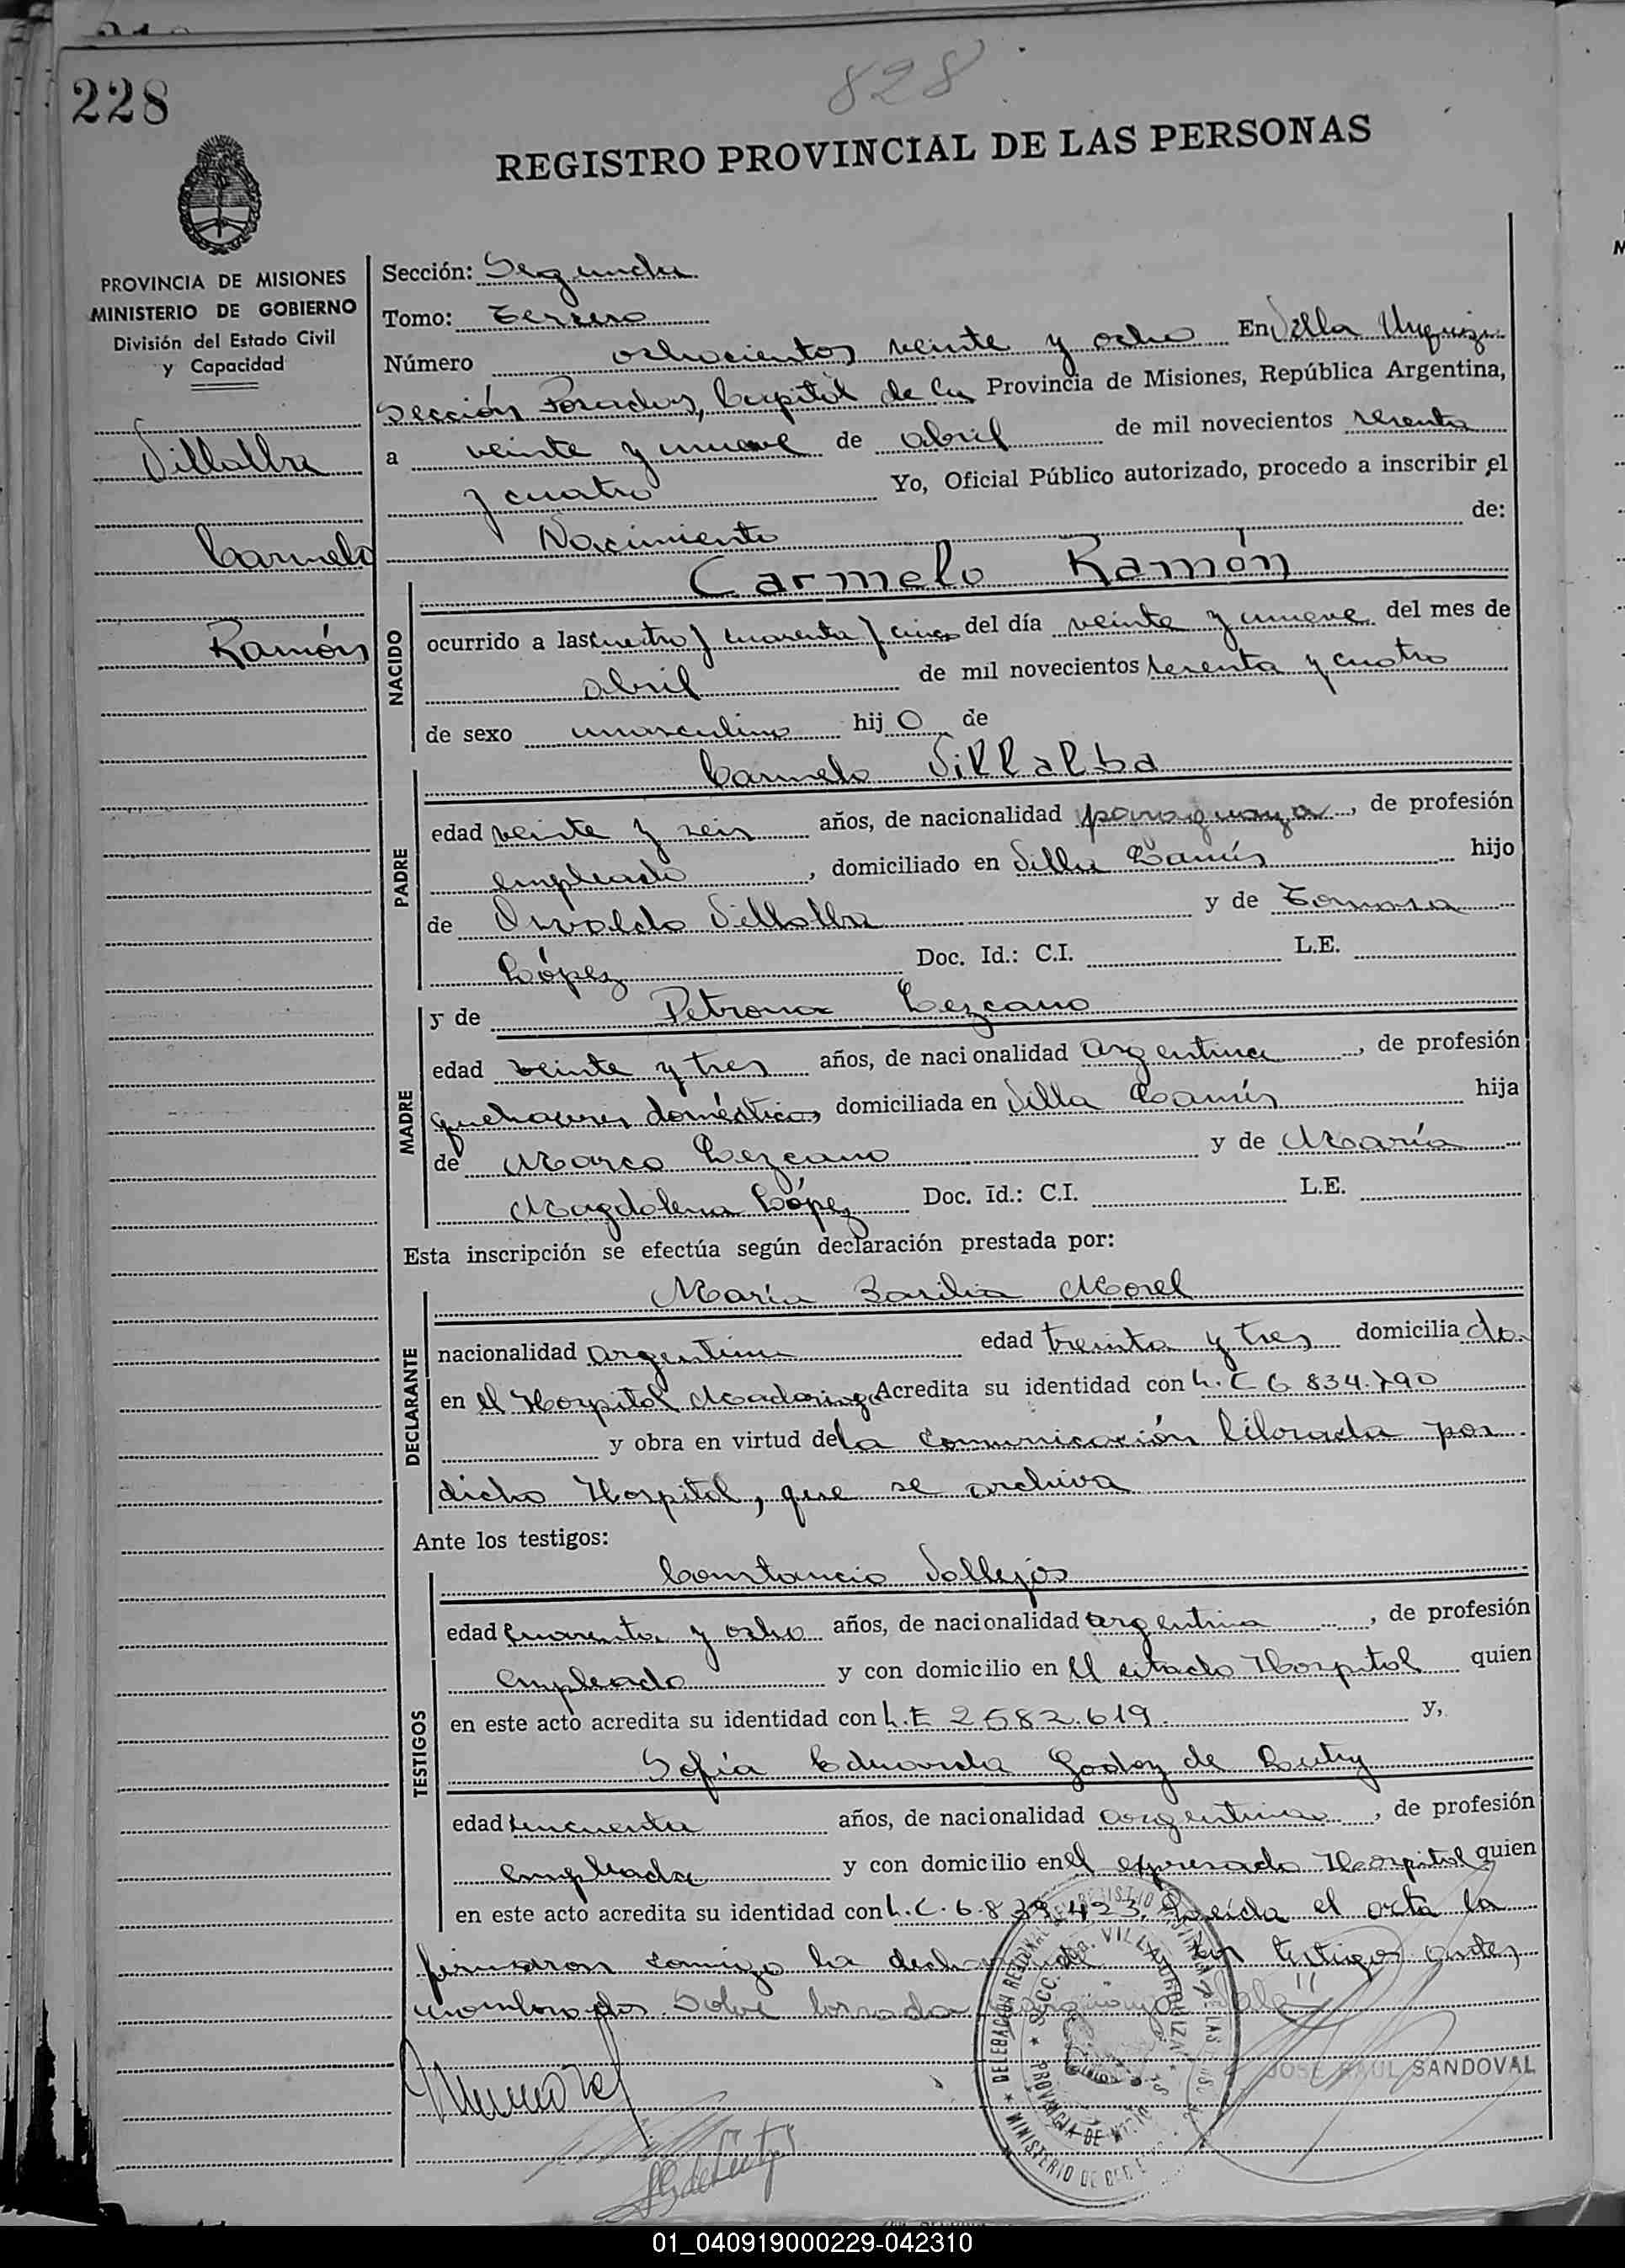 228
828
REGISTRO PROVINCIAL DE LAS PERSONAS
PROVINCIA DE MISIONES
MINISTERIO DE GOBIERNO
División del Estado Civil
y Capacidad
Villalba
Carmelo
Ramón
Sección: Segunda
Tomo: Tercero
Número ochocientos veinte y ocho En Villa Urquiza
Sección Posadas, Capital de la Provincia de Misiones, República Argentina,
a veinte y nueve de abril de mil novecientos sesenta
y cuatro Yo, Oficial Público autorizado, procedo a inscribir el
Nacimiento de:
NACIDO
Carmelo Ramón
ocurrido a las cuatro y cuarenta y cinco del día veinte y nueve del mes de
abril de mil novecientos sesenta y cuatro
de sexo masculino hijo de
PADRE
Carmelo Villalba
edad veinte y seis años, de nacionalidad paraguaya, de profesión
empleado, domiciliado en Villa Lanús hijo
de Osvaldo Villalba y de Tomasa
López Doc. Id.: C.I. L.E.
MADRE
y de Petrona Lezcano
edad veinte y tres años, de nacionalidad argentina, de profesión
quehaceres domésticos domiciliada en Villa Lanús hija
de Marco Lezcano y de María
Magdalena López Doc. Id.: C.I. L.E.
Esta inscripción se efectúa según declaración prestada por:
DECLARANTE
María Basilia Morel
nacionalidad argentina edad treinta y tres domicilia da
en el Hospital Madariaga Acredita su identidad con L.C 6 834.790
y obra en virtud de la comunicación librada por
dicho Hospital, que se archiva
Ante los testigos:
TESTIGOS
Constancio Vallejos
edad cuarenta y ocho años, de nacionalidad argentina, de profesión
empleado y con domicilio en el citado Hospital quien
en este acto acredita su identidad con L.E 2582.619. y,
Sofía Eduarda Godoy de
edad cincuenta años, de nacionalidad argentina, de profesión
empleada y con domicilio en el expresado Hospital quien
en este acto acredita su identidad con L.C. 6.839.423. Leída el acta la
firmaron conmigo la declarante y los testigos antes
nombrados. Sobre borrado "paraguaya" Vale
DELEGACION REGIONAL
SECC. VILLA URQUIZA
PROVINCIA DE MISIONES
MINISTERIO DE GOBIERNO
JOSE RAUL SANDOVAL
01_040919000229-042310